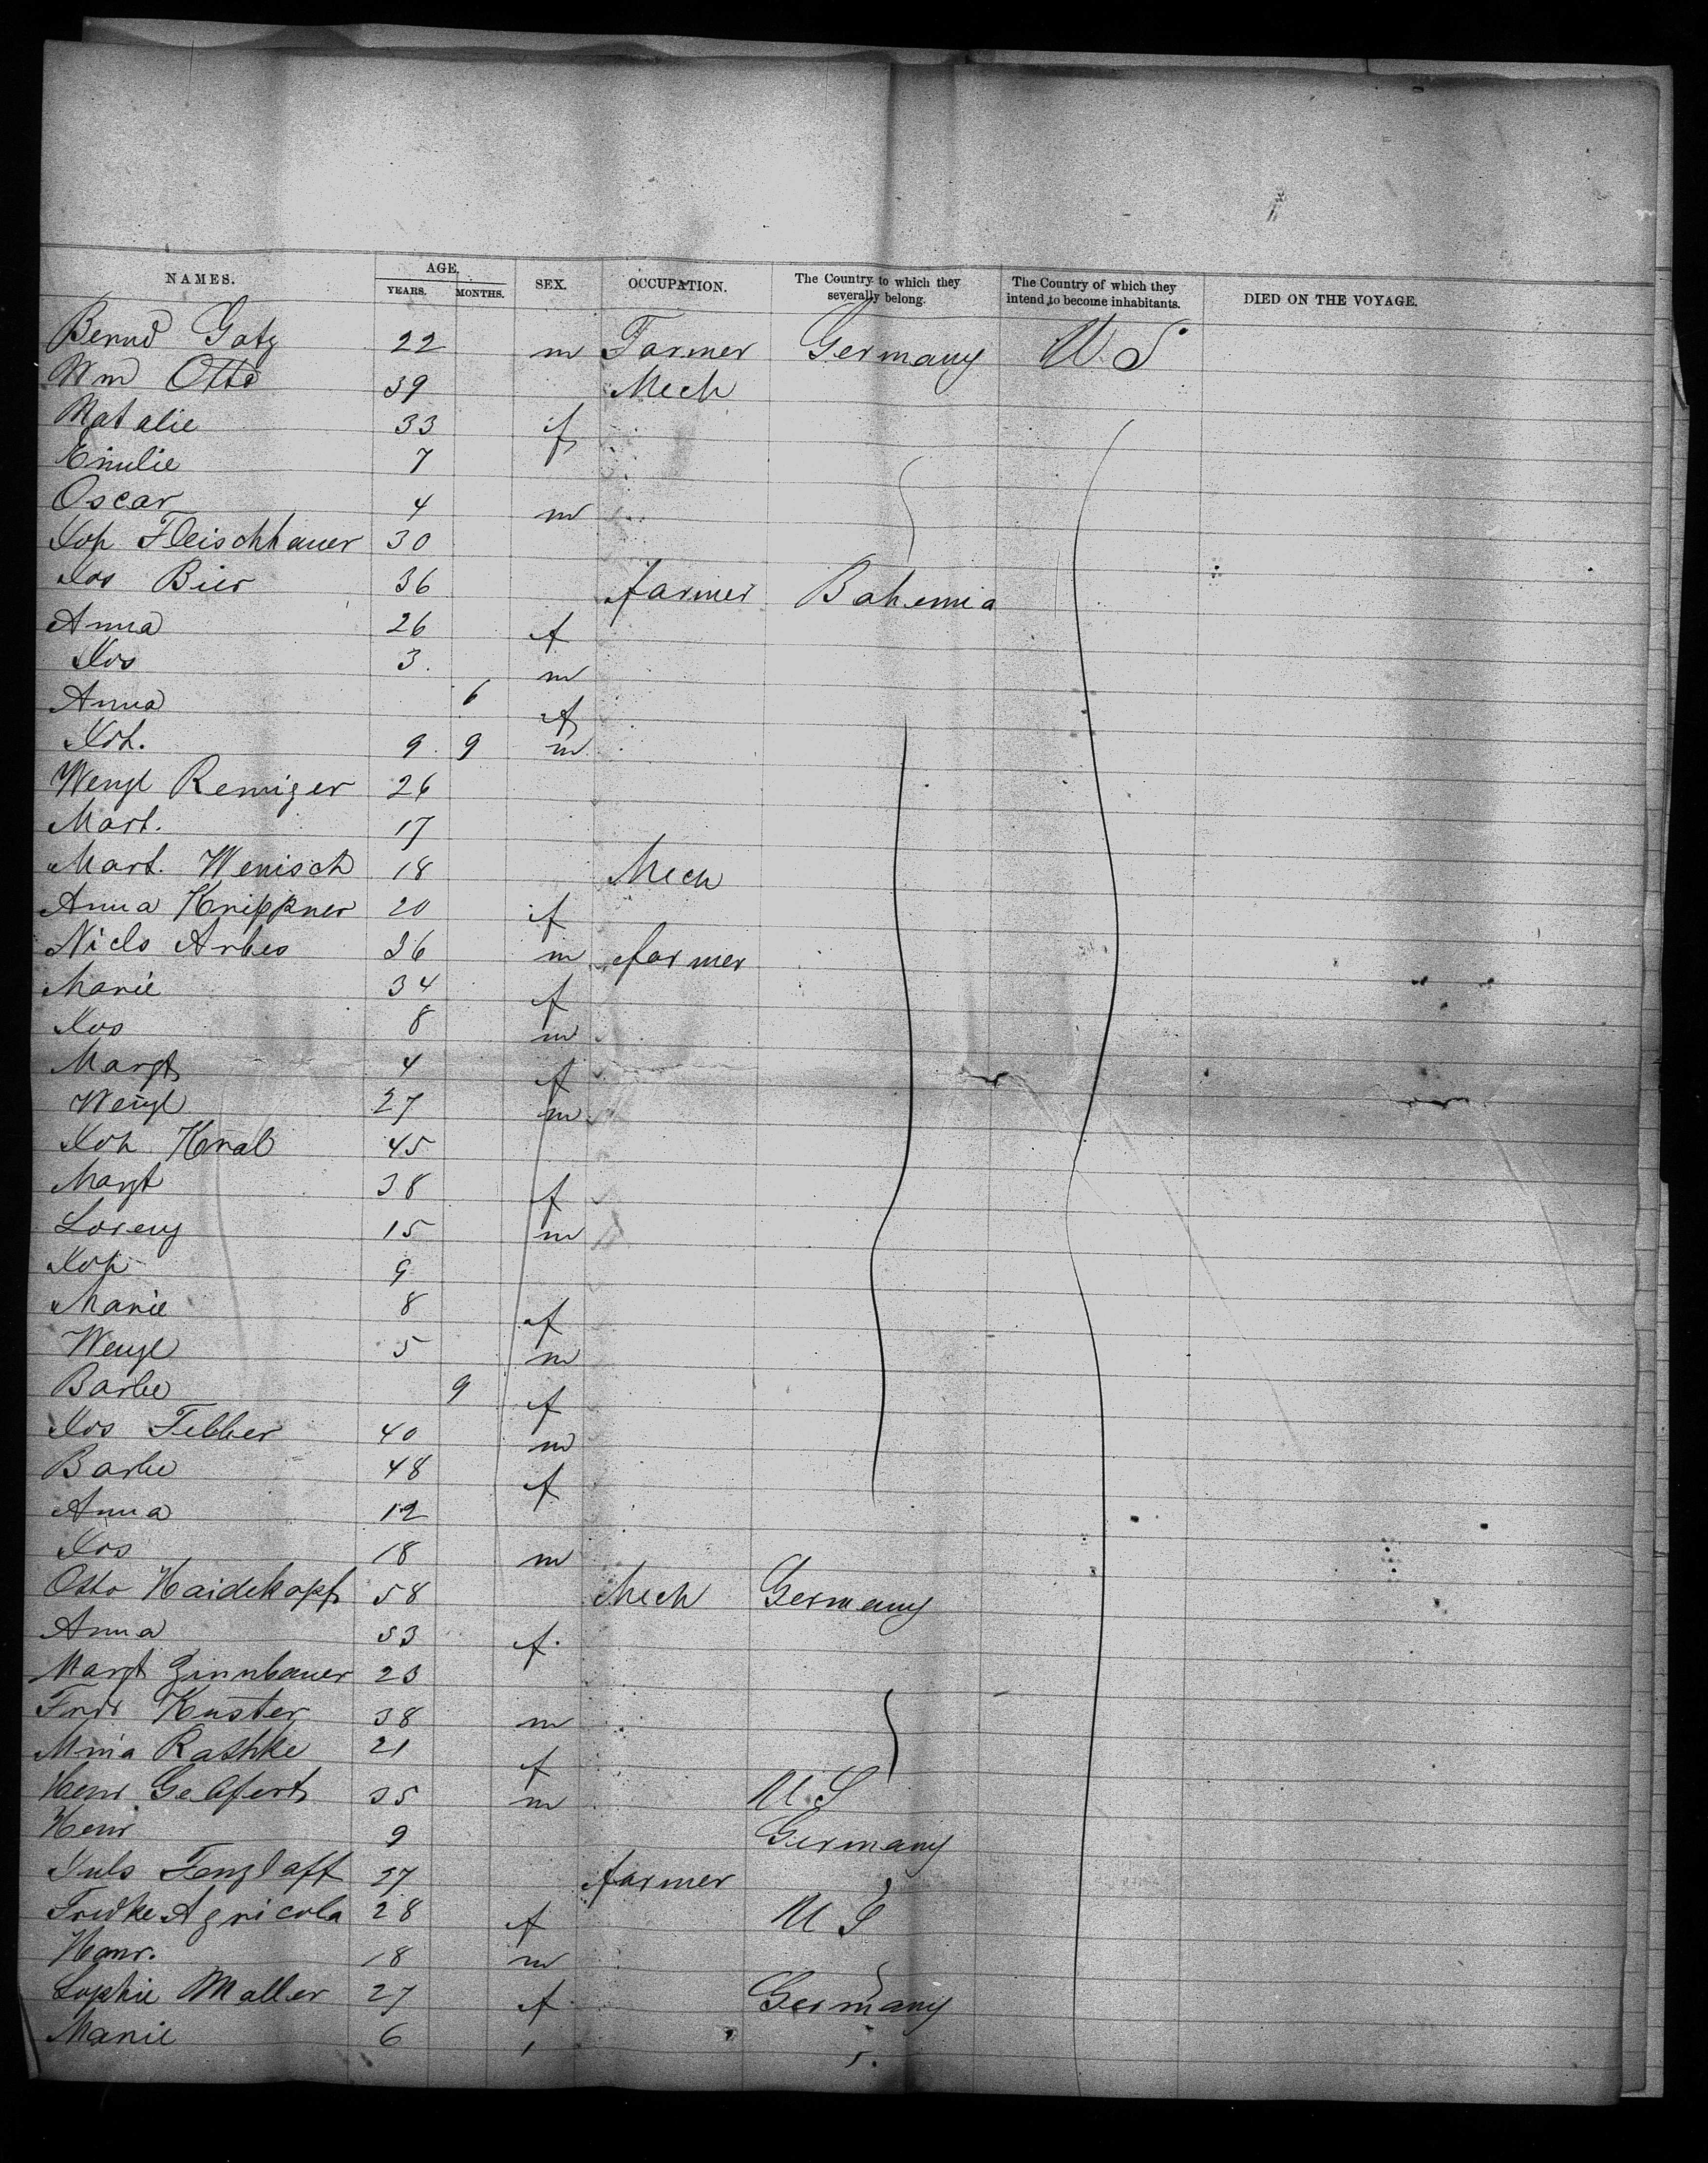 NAMES. AGE. SEX. OCCUPATION. The Country to which they severally belong. The Country of which they intend to become inhabitants. DIED ON THE VOYAGE.
YEARS. MONTHS.
Bernd Gatz 22 m Farmer Germany U. S
Wm Otto 39 Mech
Natalie 33 f
Emilie 7
Oscar 4 m
Joh Fleischhauer 30
Jos Bier 36 farmer Bohemia
Anna 26 f
Jos 3 m
Anna 6 f
Joh. 9 9 m
Wenzl Remiger 26
Mart. 17
Mart. Wenisch 18 Mech
Anna Krippner 20 f
Nicls Arbes 36 m farmer
Marie 34 f
Jos 8 m
Margt 4 f
Wenzl 27 m
Joh Kral 45
Margt 38 f
Lorenz 15 m
Joh 9
Marie 8 f
Wenzl 5 m
Barbe 9 f
Jos Felber 40 m
Barbe 48 f
Anna 12
Jos 18 m
Otto Haidekopf 58 Mech Germany
Anna 53 f.
Margt Zinnbauer 23
Frdr Kuster 38 m
Mina Rathke 21 f
Henr Gelfert 35 m U S
Henr 9 Germany
Juls Tenzlaff 27 farmer
Fredke Agricola 28 f U S
Hanr. 18 m
Sophie Maller 27 f Germany
Marie 6